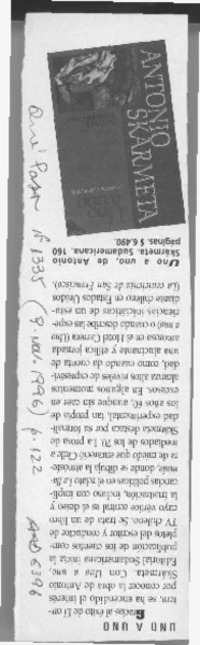 UNO A UNO
Gracias al éxito de El car-
tero, se ha encendido el interés
por conocer la obra de Antonio
Skármeta. Con Uno a uno,
Editorial Sudamericana inicia la
publicación de los cuentos com-
pletos del escritor y conductor de
TV chileno. Se trata de un libro
cuyo vértice central es el deseo y
la frustración, incluso con impli-
cancias políticas en el relato La lla-
mada, donde se dibuja la atmósfe-
ra de miedo que envolvió Chile a
mediados de los 70. La prosa de
Skármeta destaca por su formali-
dad experimental, tan propia de
los años 60, aunque sin caer en
excesos. En algunos momentos
alcanza altos niveles de expresivi-
dad, como cuando da cuenta de
una alucinante y etílica jornada
amorosa en el Hotel Carrera (Uno
a uno) o cuando describe las expe-
riencias iniciáticas de un estu-
diante chileno en Estados Unidos
(La cenicienta de San Francisco).
Uno a uno, de Antonio
Skármeta. Sudamericana. 160
páginas. $ 6.490.
ANTONIO
SKÁRMETA
Uno
a uno
Qué Pasa Nº 1335 (9. nov. 1996) p. 122